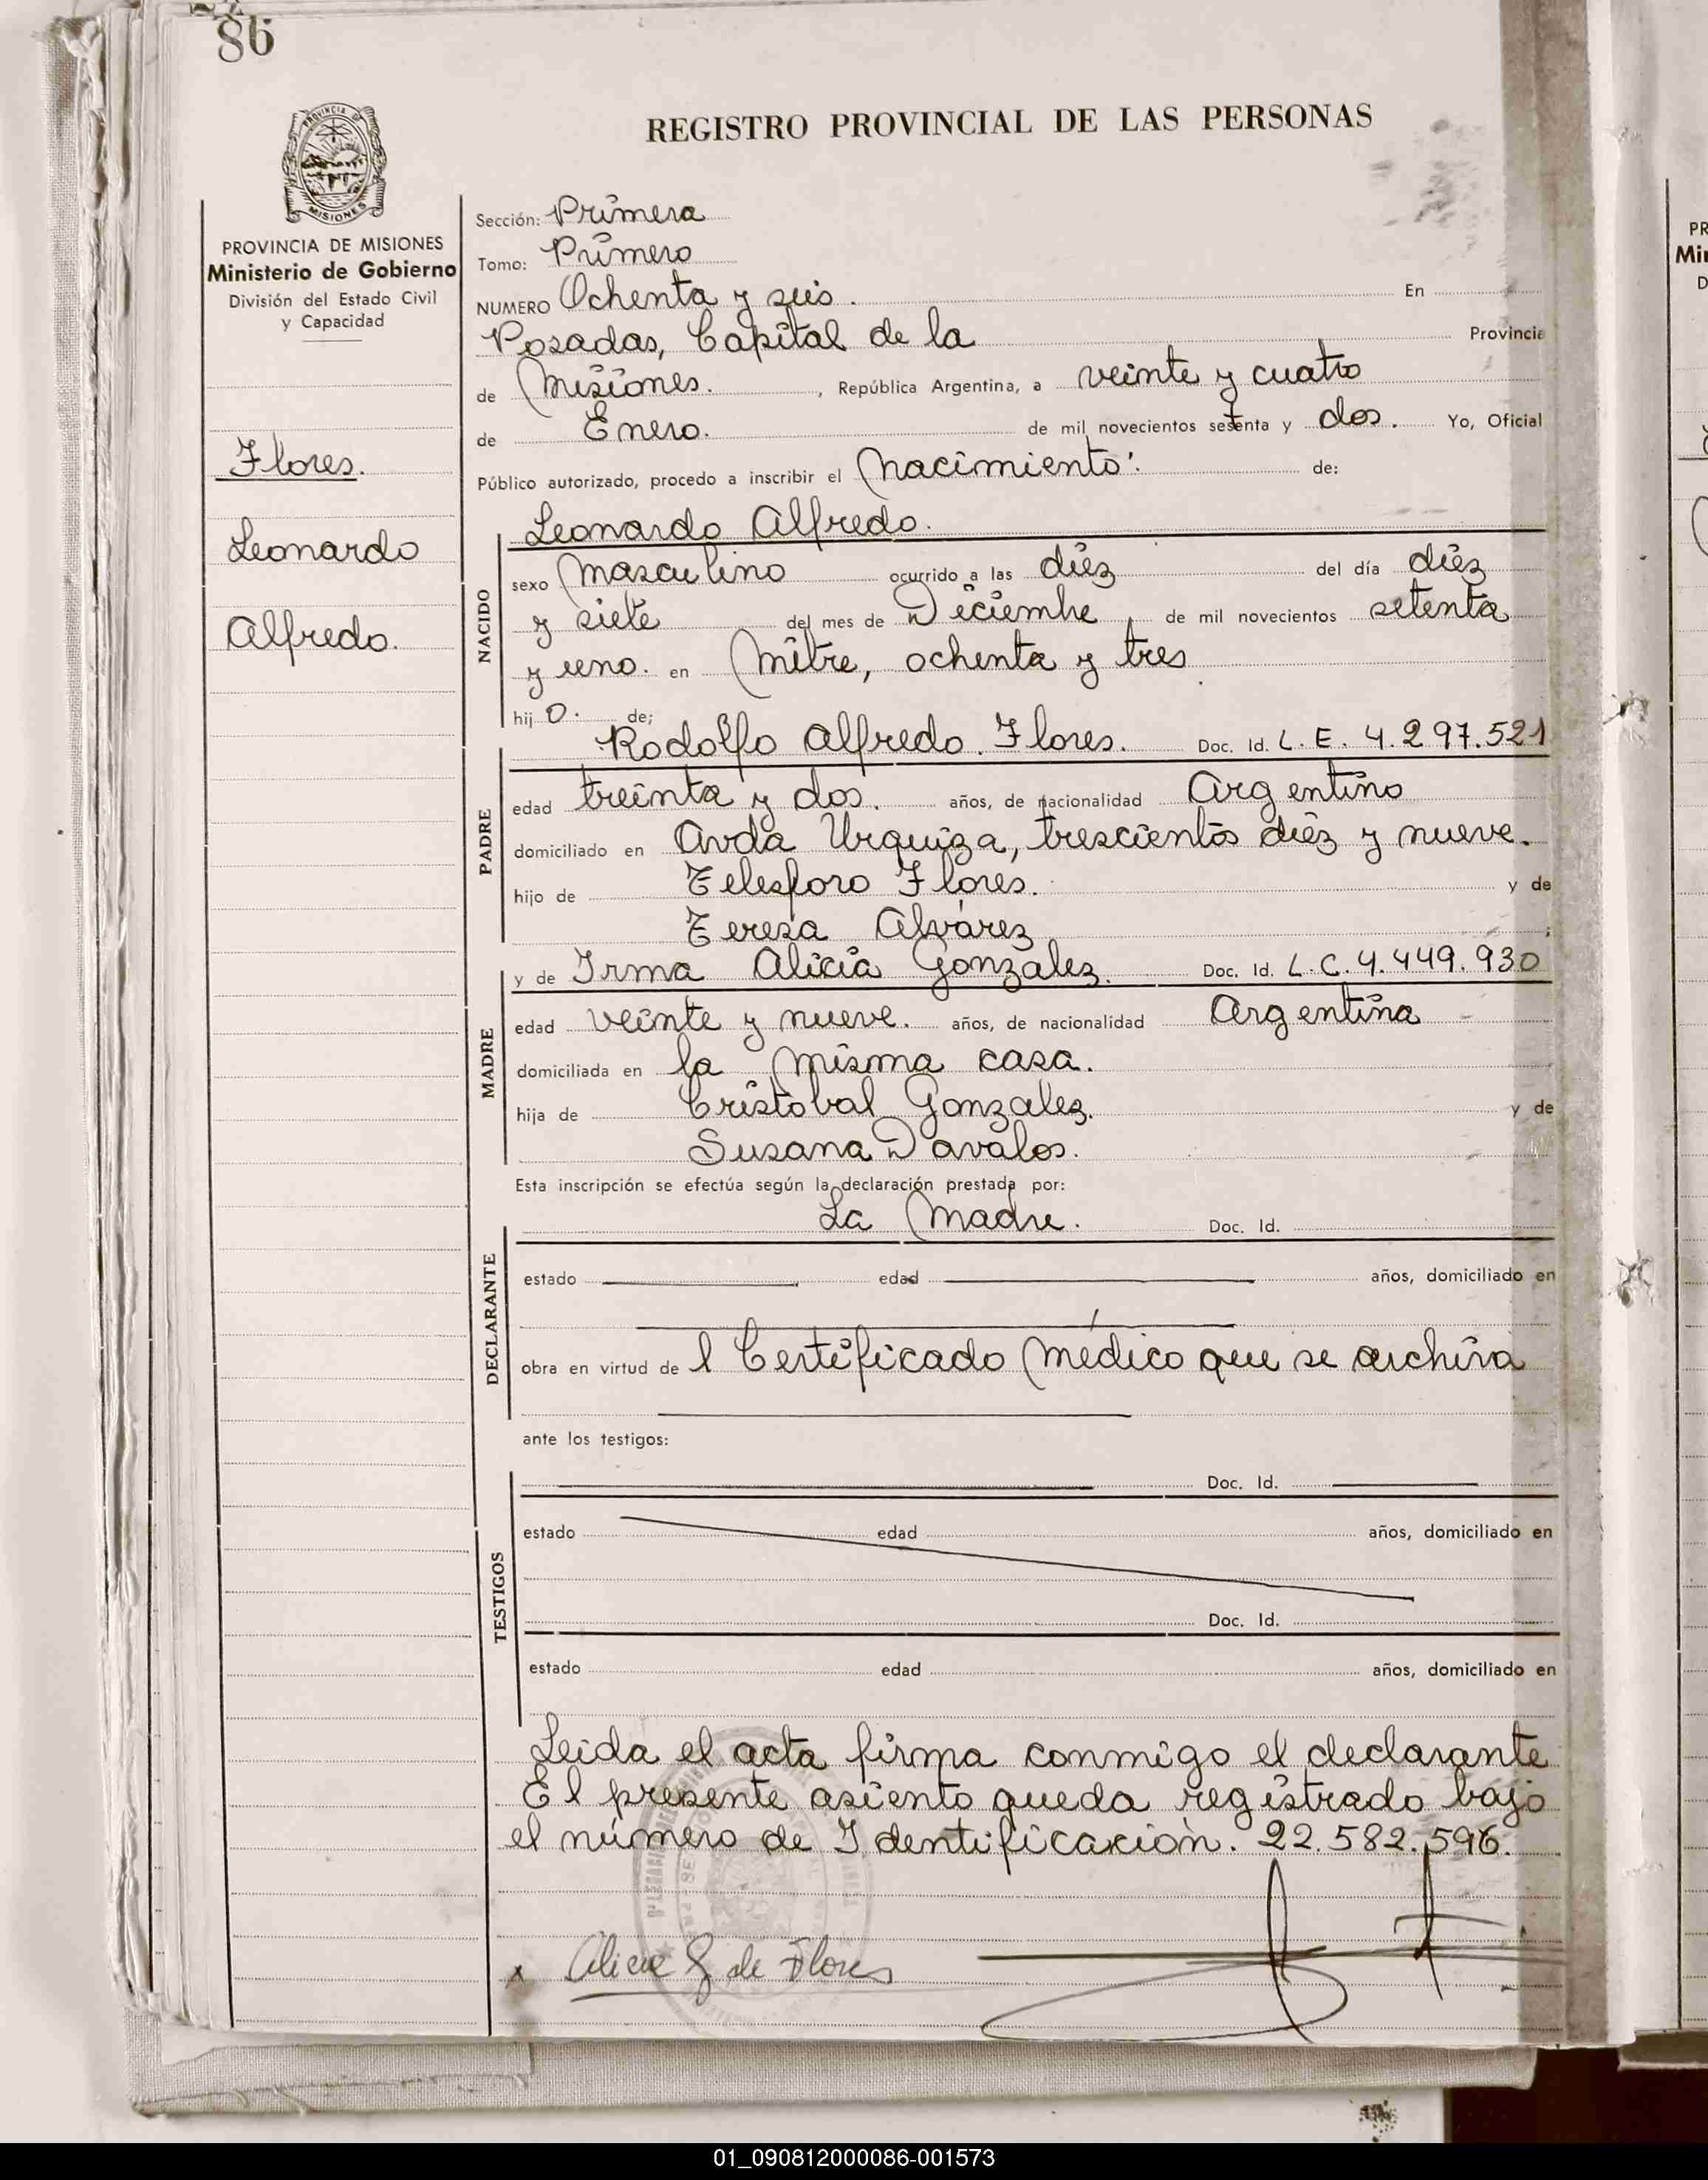 86
REGISTRO PROVINCIAL DE LAS PERSONAS
PROVINCIA DE
MISIONES
PROVINCIA DE MISIONES
Ministerio de Gobierno
División del Estado Civil
y Capacidad
Flores.
Leonardo
Alfredo.
Sección: Primera
Tomo: Primero
NUMERO Ochenta y seis. En
Posadas, Capital de la Provincia
de Misiones. , República Argentina, a veinte y cuatro
de Enero. de mil novecientos setenta y dos. Yo, Oficial
Público autorizado, procedo a inscribir el Nacimiento: de:
Leonardo Alfredo.
NACIDO
sexo Masculino ocurrido a las diéz del día diéz
y siete del mes de Diciembre, de mil novecientos setenta
y uno. en Mitre, ochenta y tres
hij o. de;
Rodolfo Alfredo. Flores. Doc. Id. L.E. 4.297.521
PADRE
edad treinta y dos. años, de nacionalidad Argentino
domiciliado en Avda Urquiza, trescientos diéz y nueve.
hijo de Telesforo Flores. y de
Teresa Alvárez ;
y de Irma Alicia Gonzalez. Doc. Id. L.C. 4.449.930
MADRE
edad veinte y nueve. años, de nacionalidad Argentina
domiciliada en la misma casa.
hija de Cristobal Gonzalez. y de
Susana Davalos.
Esta inscripción se efectúa según la declaración prestada por:
La Madre. Doc. Id.
DECLARANTE
estado edad años, domiciliado en
obra en virtud de l Certificado Médico que se archiva
ante los testigos:
Doc. Id.
TESTIGOS
estado edad años, domiciliado en
Doc. Id.
estado edad años, domiciliado en
Leida el acta firma conmigo el declarante
El presente asiento queda registrado bajo
el número de Identificación. 22.582.596.
x Alicia G de Flores
PR
Mi
D
01_090812000086-001573